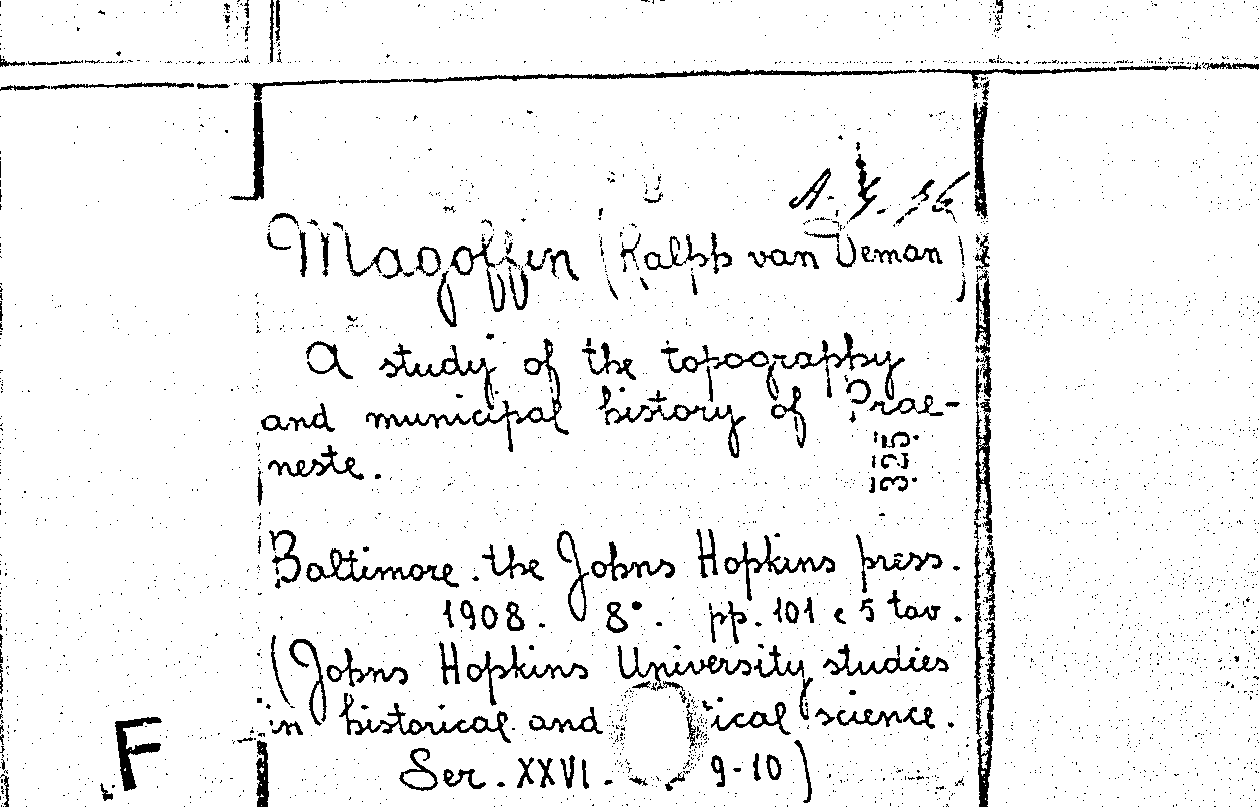 A. 4. 36
Magoffin (Ralph van Deman)
A study of the topography
and municipal history of Prae-
neste.
325
Baltimore. the Johns Hopkins press.
1908. 8°. pp. 101 e 5 tav.
(Johns Hopkins University studies
in historical and ical science.
Ser. XXVI. 9-10)
F